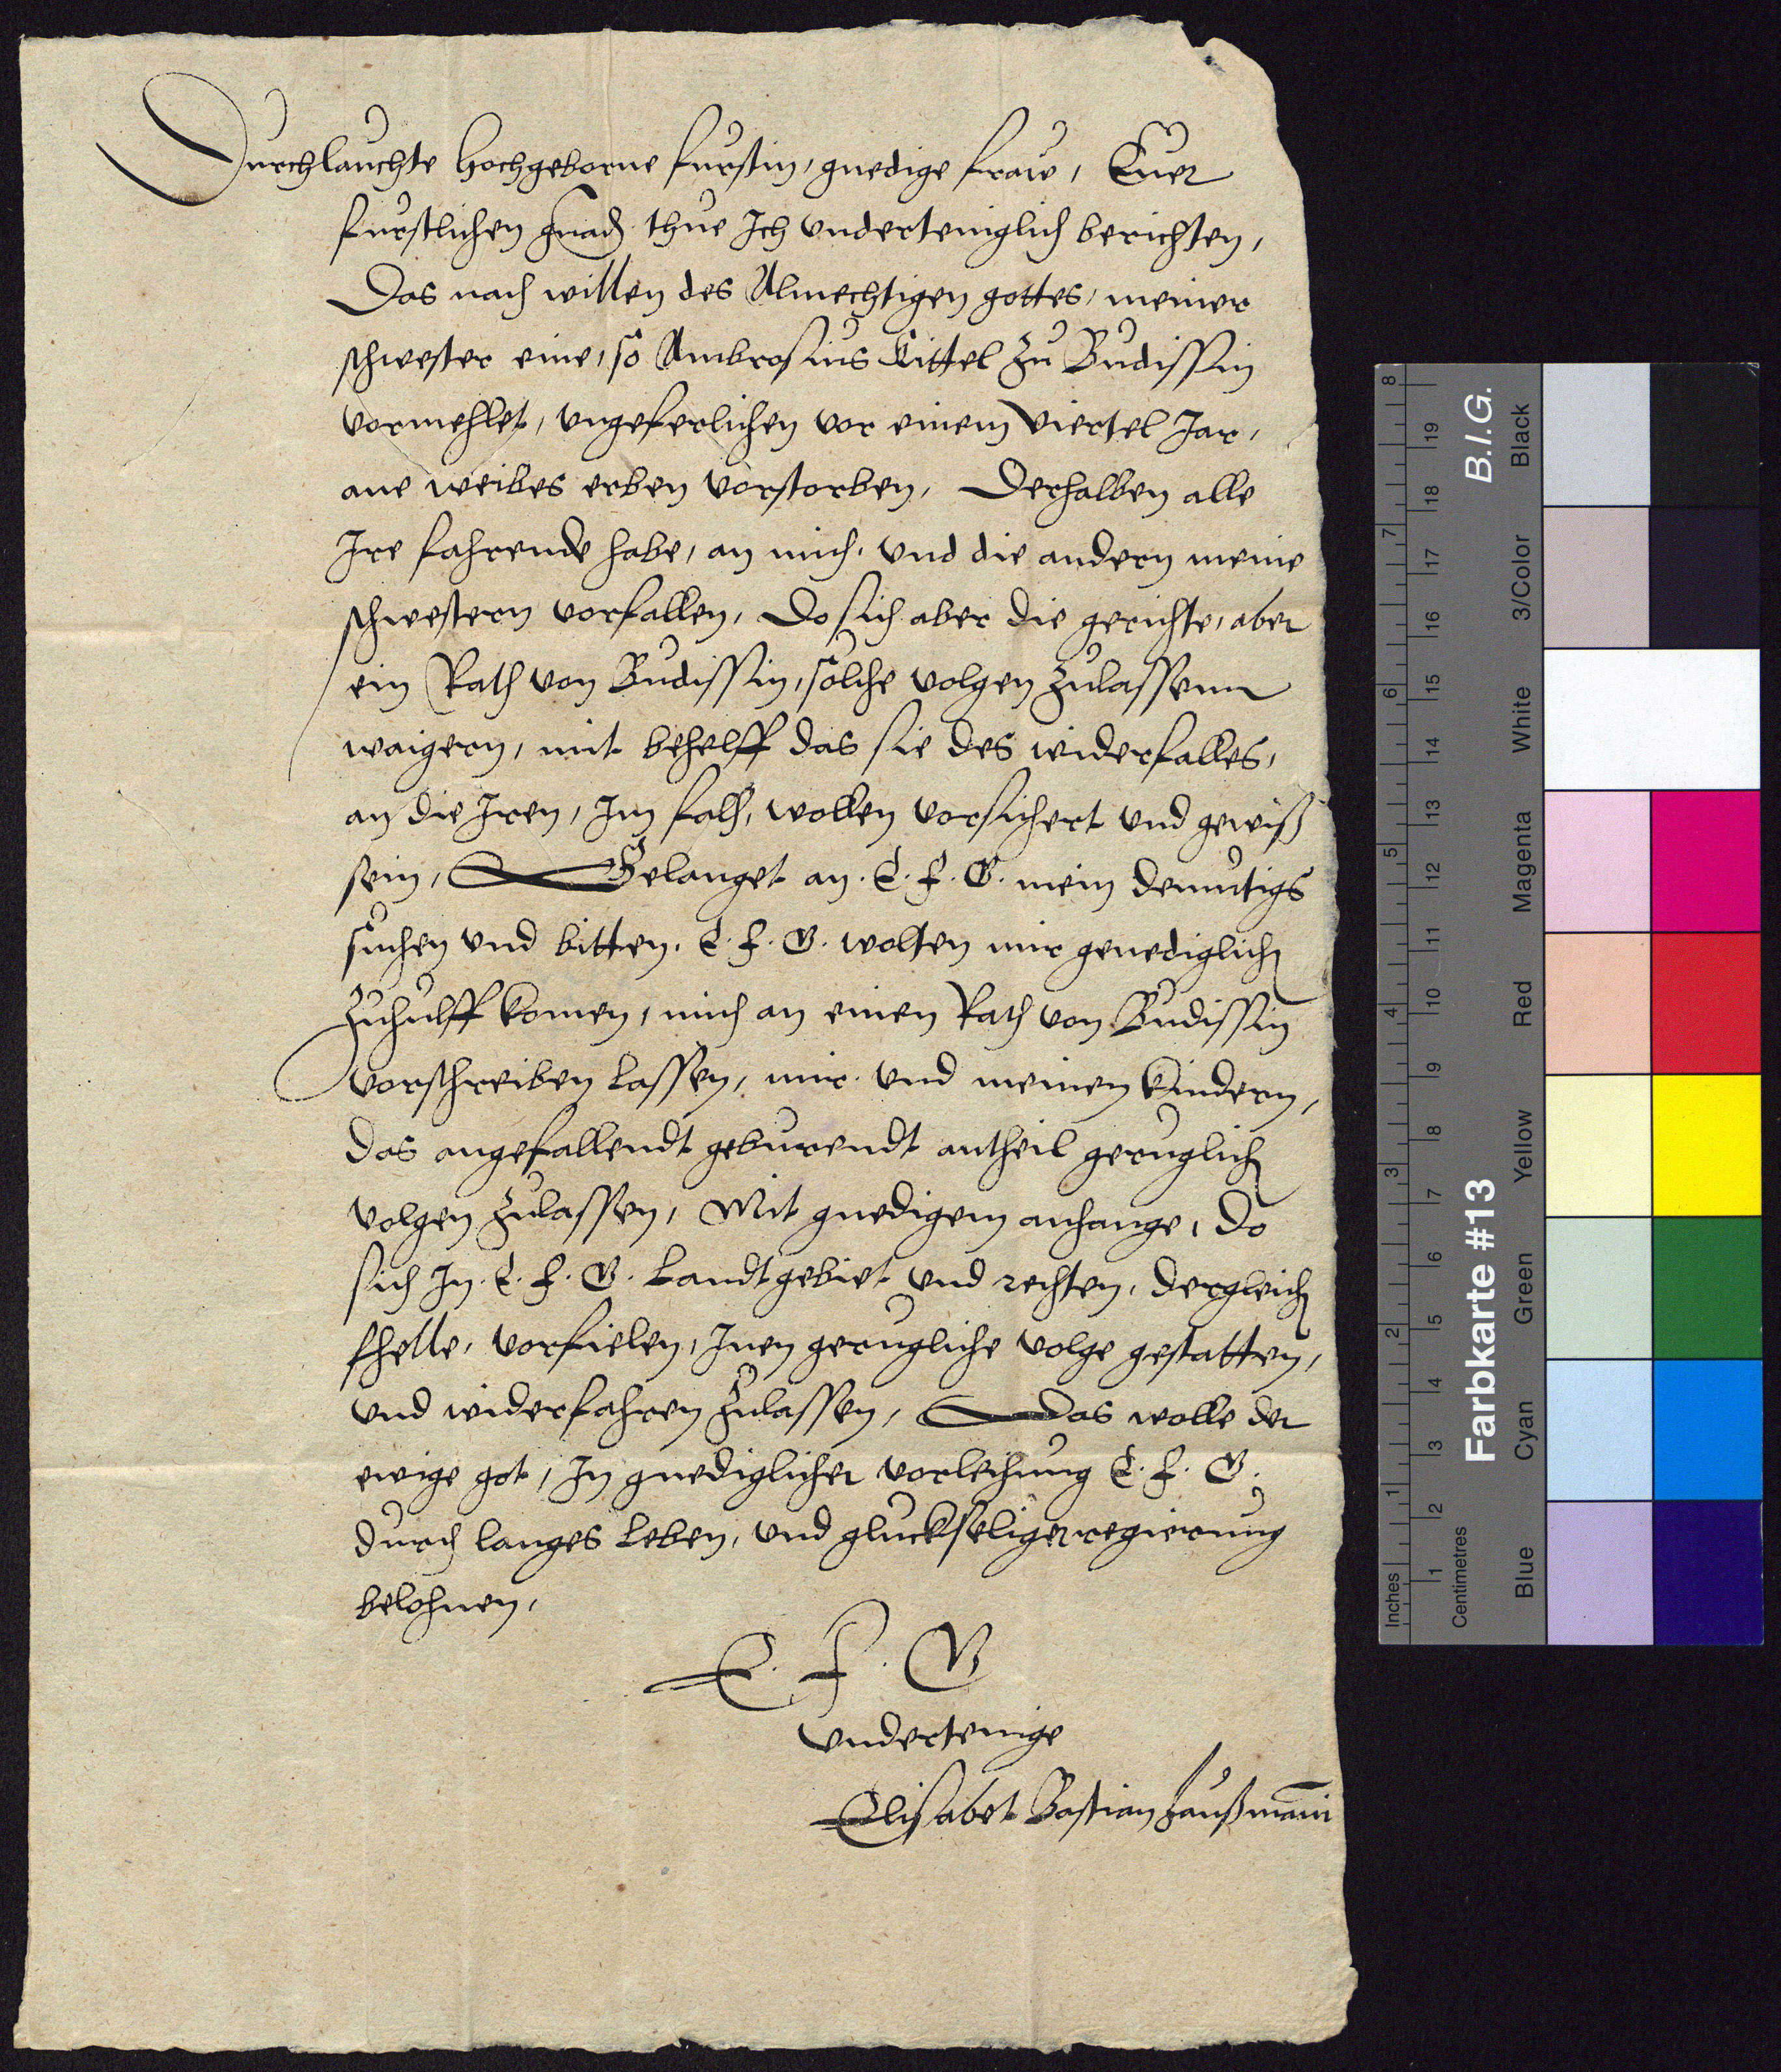 Durchlauchte Hochgeborne furstin, gnedige fraw, Euer
furstlichen gnad. thue Ich vnderteniglich berichten,
Das nach willen des Almechtigen gottes, meiner
schwester eine, so Ambrosius Kittel zu Budissin
vormehlet, vngeferlichen vor einem viertel Jar,
ane weibes erben vorstorben, Derhalben alle
Ire fahrende habe, an mich, vnd die andern meine
schwestern vorfallen, Do sich aber die gerichte, aber
ein Rath von Budissin, solche volgen zulassenn
waigern, mit behelff das sie des widerfalles,
an die Iren, Im fall, wollen vorsichert vnd gewiß
sein, Gelanget an. E. F. G. mein demutigs
suchen vnd bitten. E. F. G. wolten mir genediglich
zuhulff komen, mich an einen Rath von Budissin
vorschreiben lassen, mir vnd meinen kindern,
das angefallendt geburendt antheil geruglich
volgen zulassen, Mit gnedigem anhange, Do
sich In. E. F. G. Landtgebiet vnd rechten, dergleich
fhelle, vorfielen, Inen gerugliche volge gestatten,
vnd widerfahren zulassen, Das wolle der
ewige got, In gnediglicher vorleihung E. F. G.
durch langes leben, vnd gluckseliger regierung
belohnen,
E. F. G
vndertenige
Elisabet Bastian Haußmanin
B.I.G.
Farbkarte #13
Inches 1 2 3 4 5 6 7 8
Centimetres 1 2 3 4 5 6 7 8 9 10 11 12 13 14 15 16 17 18 19
Blue Cyan Green Yellow Red Magenta White 3/Color Black